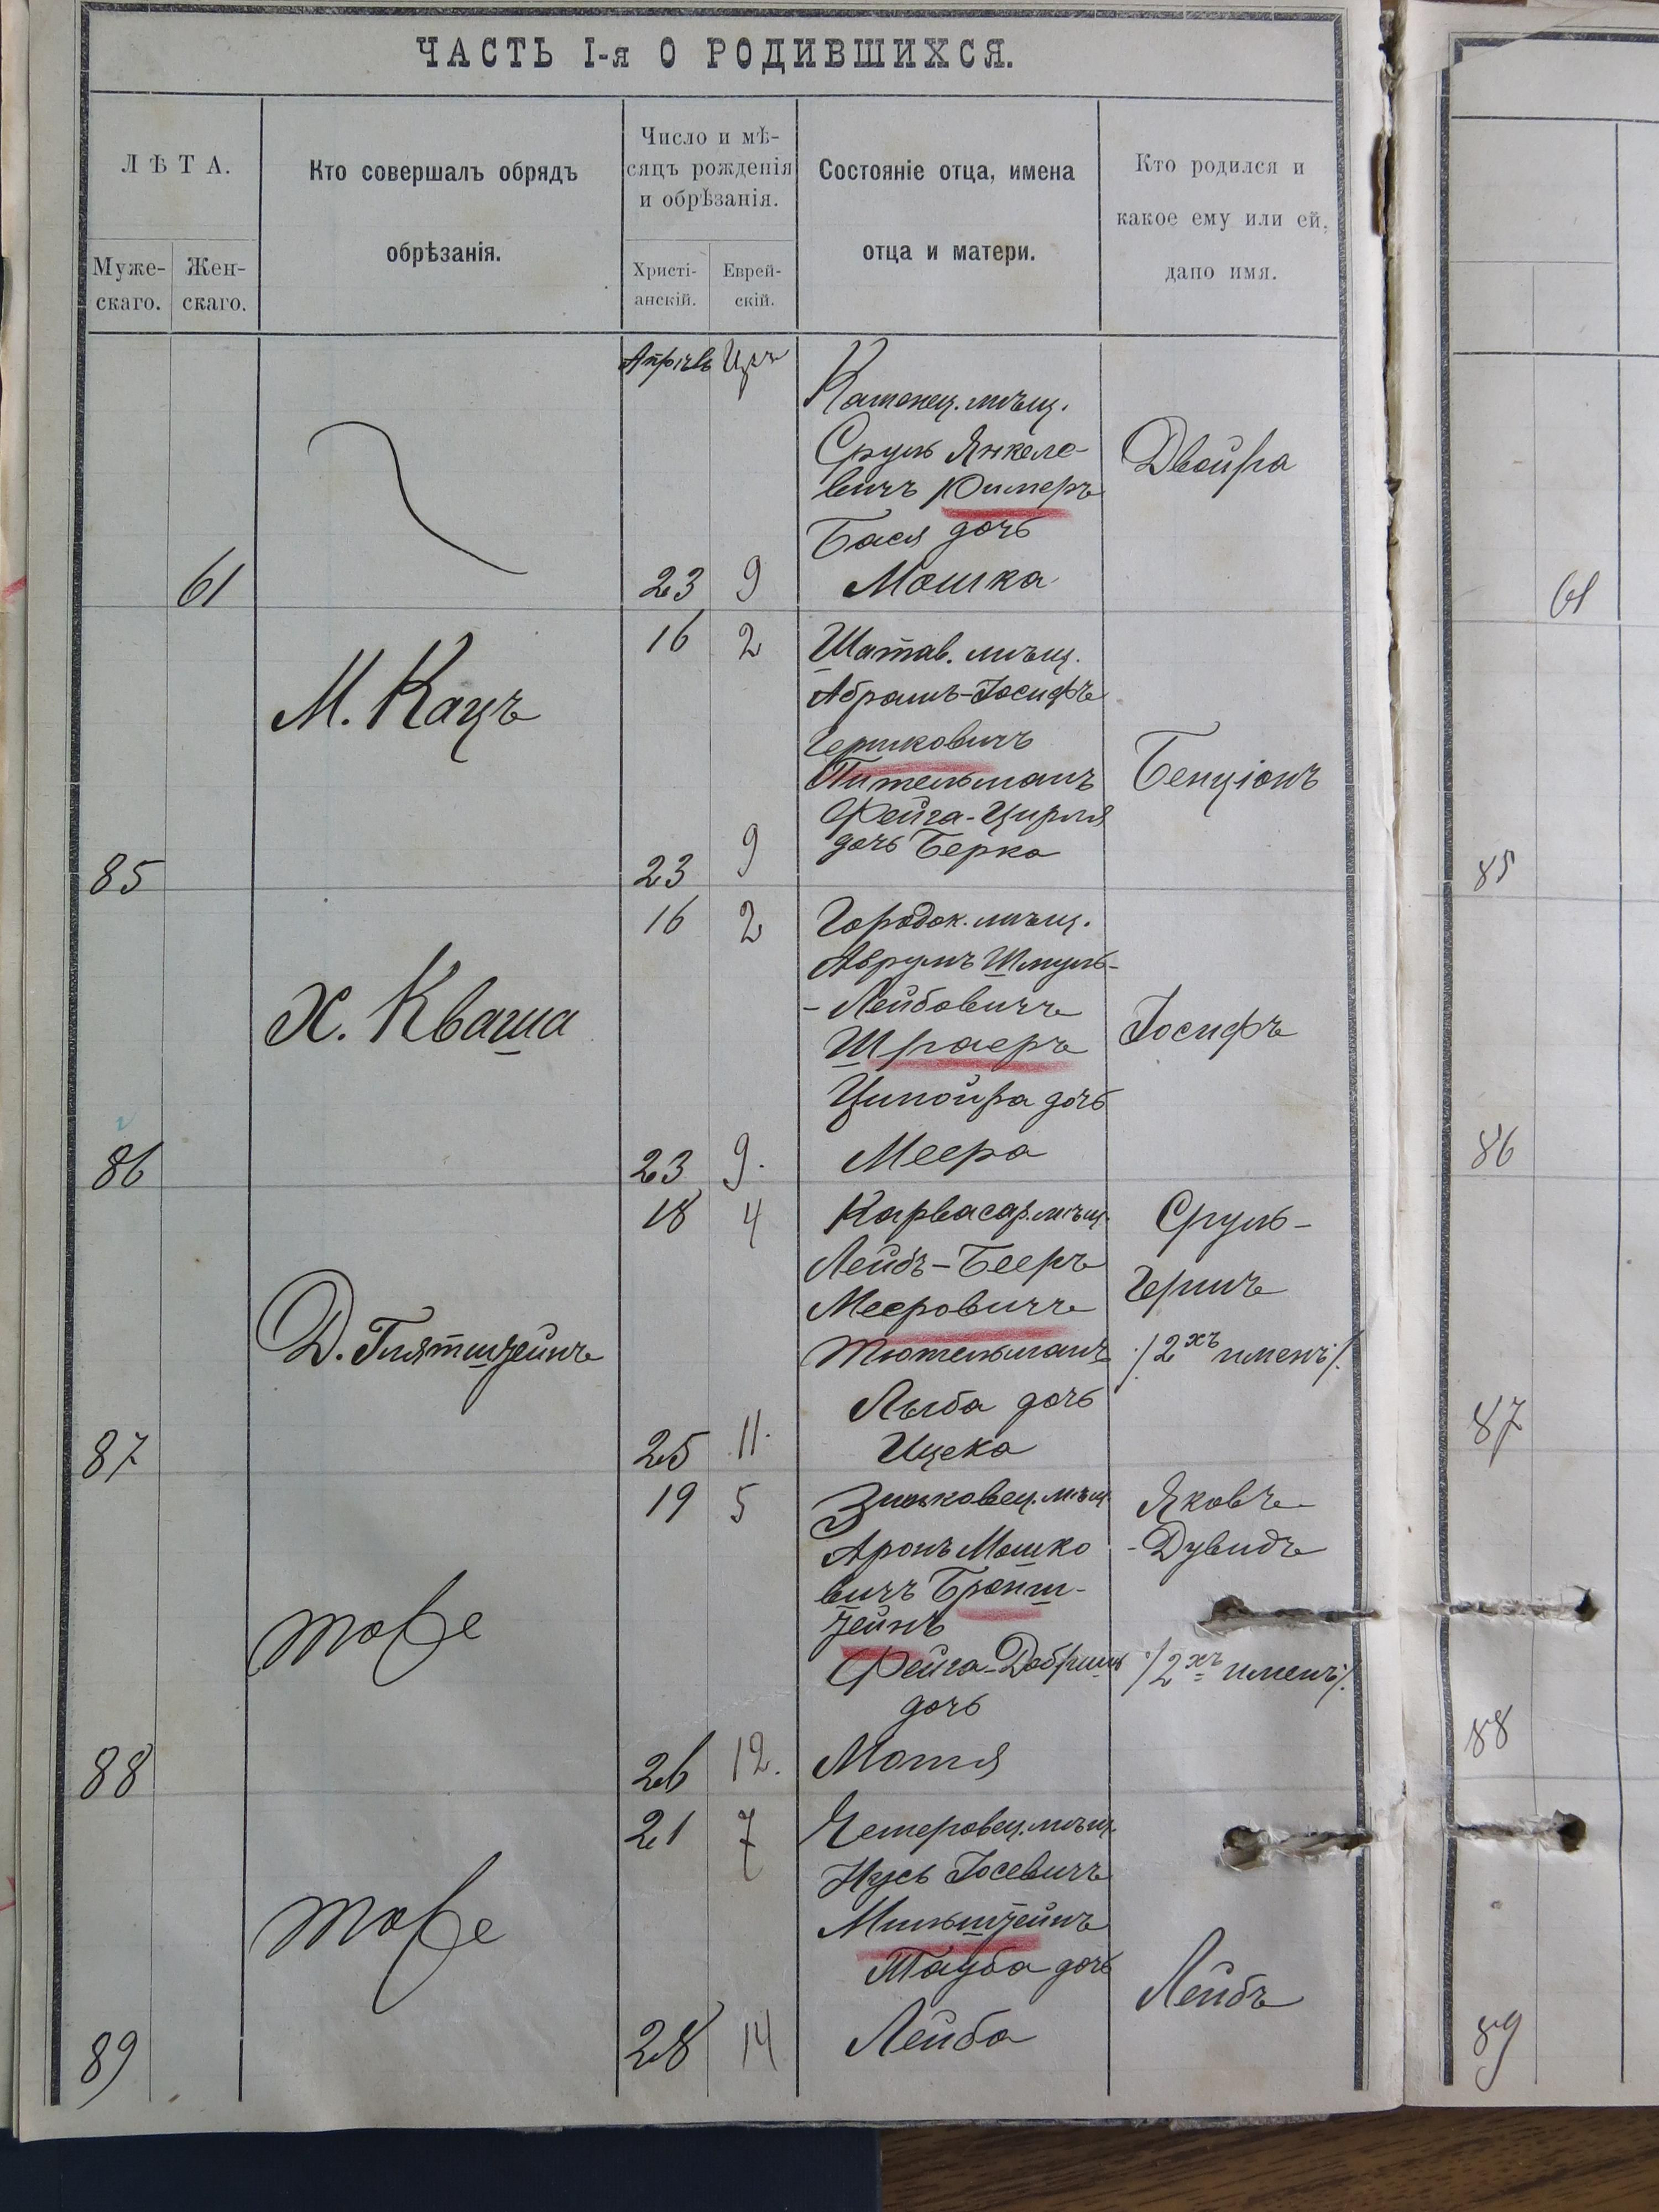 ЧАСТЬ I-я О РОДИВШИХСЯ.
ЛѢТА.
Муже-
скаго.
Жен-
скаго.
Кто совершалъ обрядъ
обрѣзанія.
Число и мѣ-
сяцъ рожденія
и обрѣзанія.
Христі-
анскій.
Еврей-
скій.
Состояніе отца, имена
отца и матери.
Кто родился и
какое ему или ей,
дано имя.
Апрѣль Иръ
Каменец. мѣщ.
Сруль Янкеле-
вичъ
Бася дочь
Мошка
Двойра
61
23 9
61
16 2
М. Кацъ
Шатав. мѣщ.
Абрамъ-Іосифъ
Гершковичъ
Тительманъ
Фейга-Цирля
дочь Берка
Бенціонъ
85
23 9
85
16 2
Х. Кваша
Городок. мѣщ.
Аврумъ Шмуль-
-Лейбовичъ
Шраеръ
Ципойра дочь
Меера
Іосифъ
86
23 9.
86
18 4
Д. Глятштейнъ
Карвасар. мѣщ.
Лейбъ-Бееръ
Мееровичъ
Тютельманъ
Лыба дочь
Ицека
Сруль-
Гершъ
/2хъ именъ/.
87
25 11.
87
19 5
тоже
Зиньковец. мѣщ.
Аронъ Мошко
вичъ Бронш-
тейнъ
Фейга-Добришъ
дочь
Мотя
Яковъ-
-Дувидъ
/2хъ именъ/.
88
26 12.
88
21 7
тоже
Чемеровец. мѣщ.
Нусь Іосевичъ
Мильштейнъ
Тауба дочь
Лейба
Лейбъ
89
28 14
89